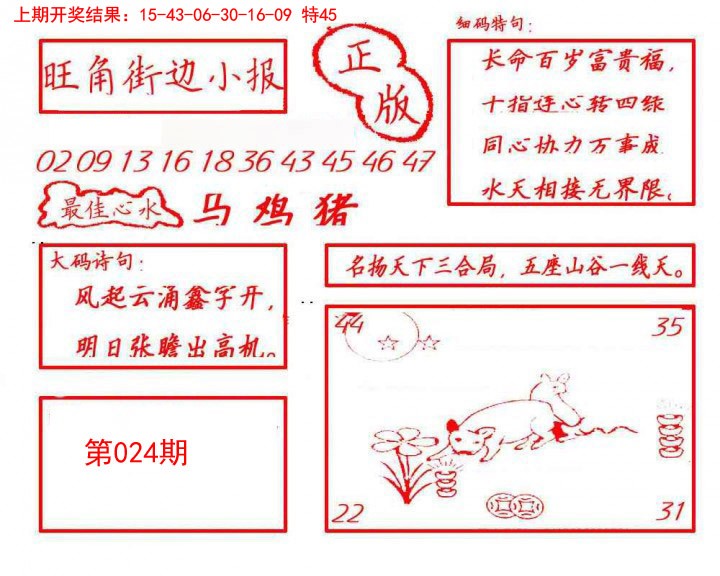 上期开奖结果：15-43-06-30-16-09 特45
细码特句：
旺角街边小报
正版
长命百岁富贵福，
十指连心转四绿
同心协力万事成
水天相接无界限。
02 09 13 16 18 36 43 45 46 47
最佳心水
马 鸡 猪
大码诗句：
风起云涌鑫字开，
明日张瞻出高机。
名扬天下三合局，五座山谷一线天。
44
35
第024期
22
31